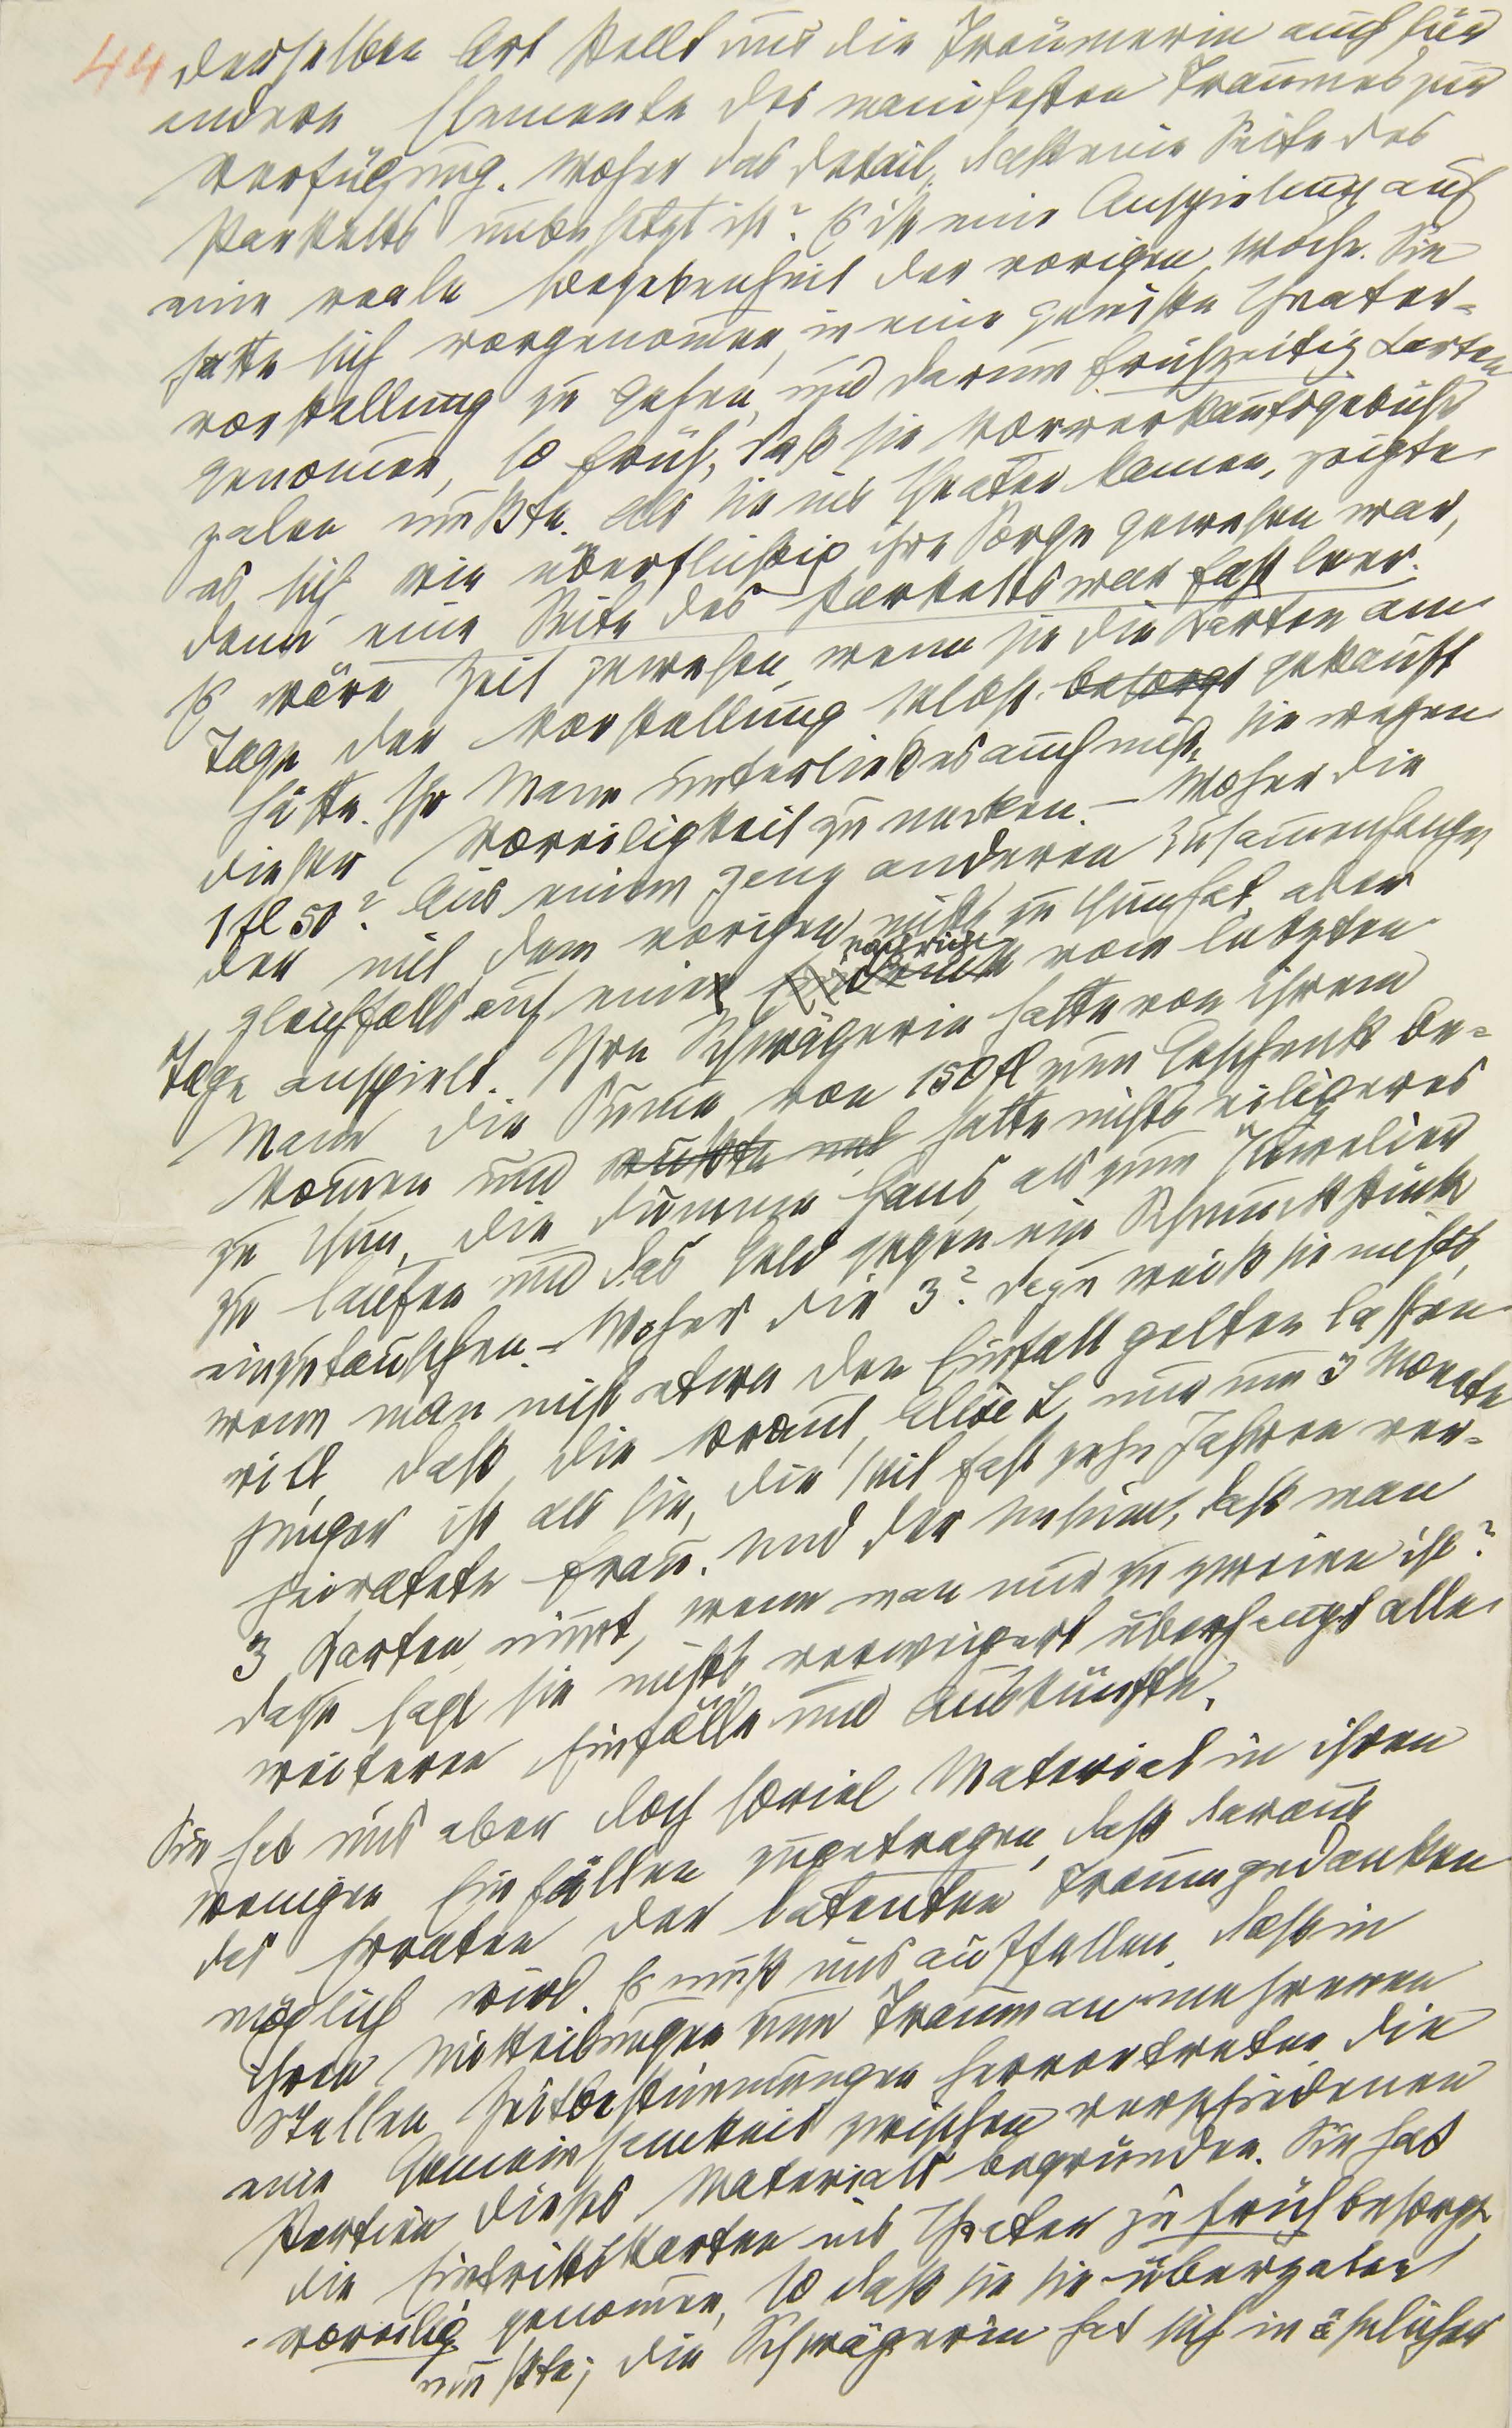 44
derselben Art stellt uns die Träumerin auch für
andere Elemente des manifesten Traumes zur
Verfügung. Woher das Detail, daß eine Seite des
Parketts unbesetzt ist? Es ist eine Anspielung auf
eine reale Begebenheit der vorigen Woche. Sie
hatte sich vorgenommen, in eine gewisse Theater-
vorstellung zu gehen, und darum frühzeitig Karten
genommen, so früh, daß sie Vorverkaufsgebühr
zalen mußte. Als sie ins Theater kamen, zeigte
es sich wie überflüssig ihre Sorge gewesen war,
denn eine Seite des Parketts war fast leer.
Es wäre Zeit gewesen, wenn sie die Karten am
Tage der Vorstellung selbst besorgt gekauft
hätte. Ihr Mann unterließ es auch nicht, sie wegen
dieser Voreiligkeit zu necken. – Woher die
1 fl 50? Aus einem ganz anderen Zusammenhange,
der mit dem vorigen nichts zu thun hat, aber
gleichfalls auf eine Nachricht vom letzten
Tage anspielt. Ihre Schwägerin hatte von ihrem
Mann die Summe von 150 fl zum Geschenk be-
kommen und wußte und hatte nichts eiligeres
zu thun, die dumme Gans, als zum Juwelier
zu laufen und das Geld gegen ein Schmuckstück
einzutauschen. – Woher die 3? Dazu weiß sie nichts,
wenn man nicht etwa den Einfall gelten lassen
will, daß die Braut, Elise L, nur um 3 Monate
jünger ist als sie, die seit fast zehn Jahren ver-
heiratete Frau. Und der Unsinn, daß man
3 Karten nimmt, wenn man nur zu zweien ist?
Dazu sagt sie nichts, verweigert überhaupt alle
weiteren Einfälle und Auskünfte.
Sie hat uns aber doch soviel Material in ihren
wenigen Einfällen zugetragen, daß daraus
das Erraten der latenten Traumgedanken
möglich wird. Es muß uns auffallen, daß in
ihren Mitteilungen zum Traum an mehreren
Stellen Zeitbestimmungen hervortreten, die
eine Gemeinsamkeit zwischen verschiedenen
Partien dieses Materials begründen. Sie hat
die Eintrittskarten ins Theater zu früh besorgt,
voreilig genommen, so daß sie sie überzalen
mußte; die Schwägerin hat sich in änlicher